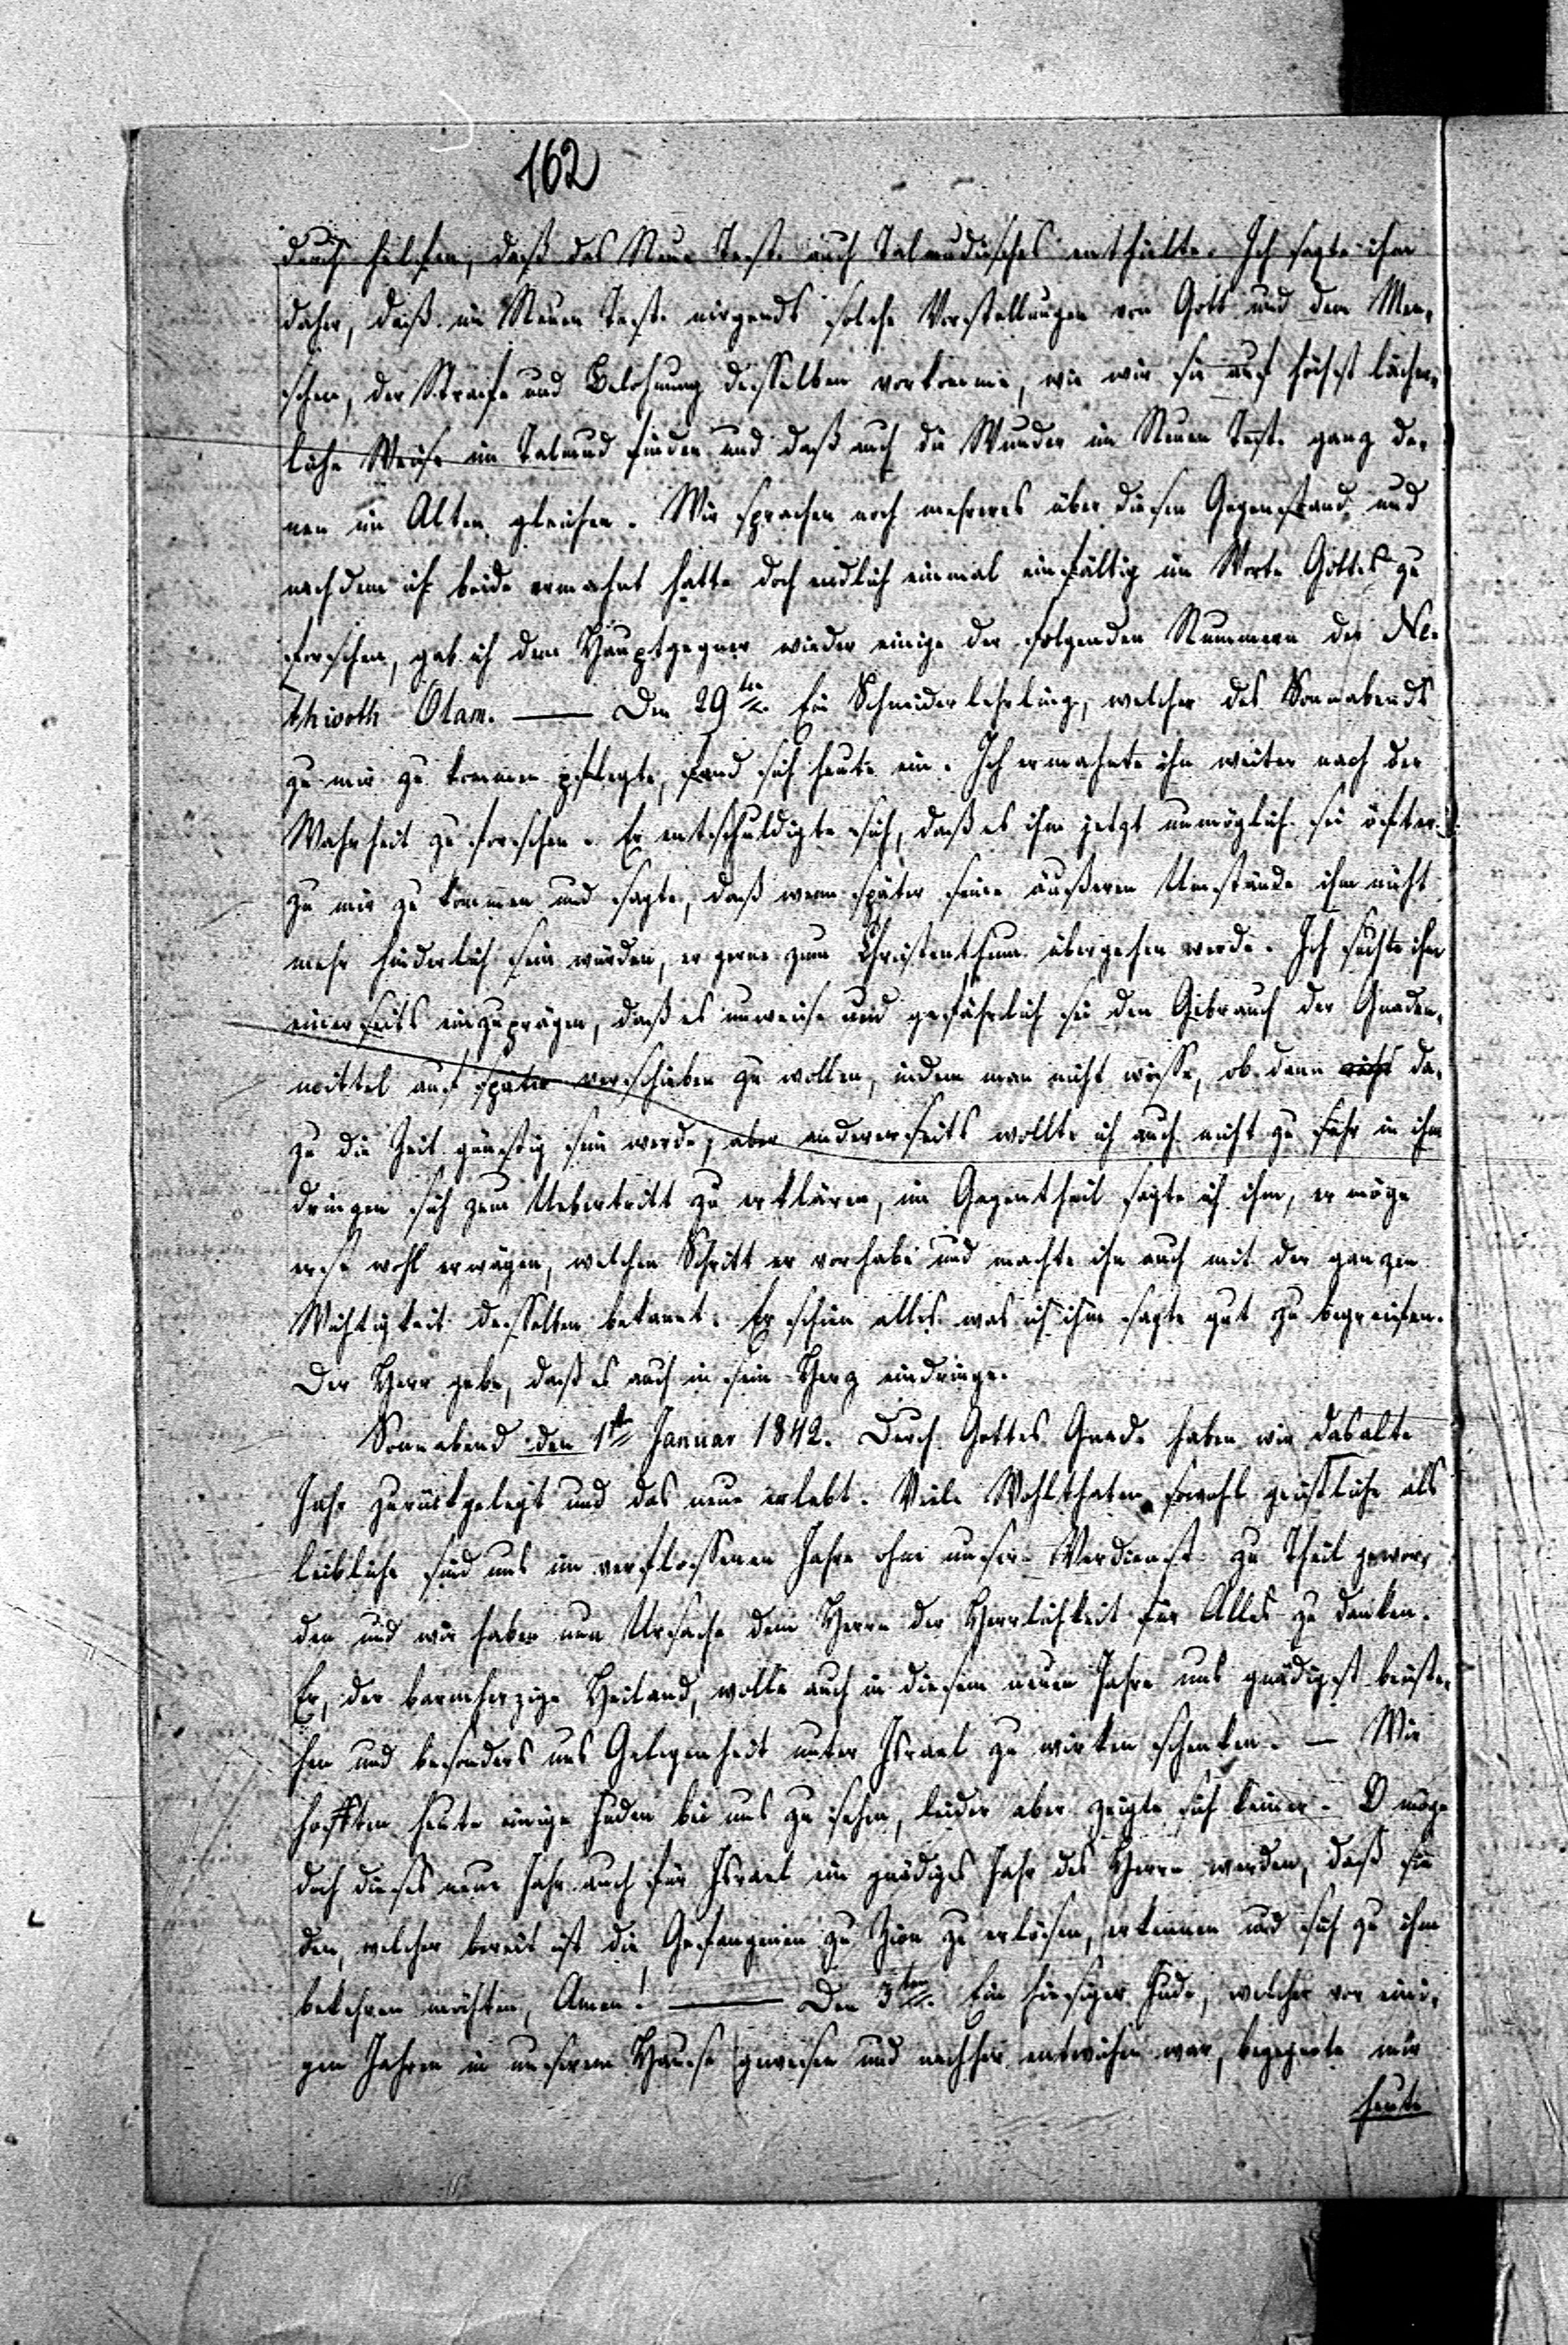 162
durch helfen, daß das Neue Test. auch Talmudisches enthielte. Ich sagte ihm
daher, daß im Neuen Test. nirgends solche Vorstellungen von Gott und dem Men-
schen, der Strafe und Belohnung desselben vorkomme, wie wir sie auf höchst lächer-
liche Weise im Talmud finden und daß auch die Wunder im Neuen Test. ganz de-
nen im Alten gleichen. Wir sprachen noch mehreres über diesen Gegenstand und
nachdem ich beide ermahnt hatte doch endlich einmal einfältig im Worte Gottes zu
forschen, gab ich dem Hauptgegner wieder einige der folgenden Nummern des Ne-
thivoth Olam. — Den 29ten. Ein Schneiderlehrling, welcher des Sonnabends
zu mir zu kommen pflegte, fand sich heute ein. Ich ermahnte ihn weiter nach der
Wahrheit zu forschen. Er entschuldigte sich, daß es ihm jetzt unmöglich sei öfter
zu mir zu kommen und sagte, daß wenn später seine äußeren Umstände ihm nicht
mehr hinderlich sein würden, er gerne zum Christenthum übergehen werde. Ich suchte ihm
einerseits einzuprägen, daß es unweise und gefährlich sei den Gebrauch der Gnaden-
mittel auf später verschieben zu wollen, indem man nicht wisse, ob denn nicht da-
zu die Zeit günstig sein werde; aber andererseits wollte ich auch nicht zu sehr in ihn
dringen sich zum Uebertritt zu erklären, im Gegentheil sagte ich ihm, er möge
erst wohl erwägen, welchen Schritt er vorhabe und machte ihn auch mit der ganzen
Wichtigkeit desselben bekannt. Er schien alles was ich ihm sagte gut zu begreifen.
Der Herr gebe, daß es auch in sein Herz eindringe.
Sonnabend den 1ten Januar 1842. Durch Gottes Gnade haben wir das alte
Jahr zurückgelegt und das neue erlebt. Viele Wohlthaten sowohl geistliche als
leibliche sind uns im verflossenen Jahre ohne unser Verdienst zu Theil gewor-
den und wir haben nun Ursache dem Herrn der Herrlichkeit für Alles zu danken.
Er, der barmherzige Heiland, wolle auch in diesem neuen Jahre uns gnädigst beiste-
hen und besonders uns Gelegenheit unter Israel zu wirken schenken. — Wir
hofften heute einige Juden bei uns zu sehen, leider aber zeigte sich keiner. O möge
doch dieses neue Jahr auch für Israel ein gnädiges Jahr des Herrn werden, daß sie
den, welcher bereit ist die Gefangenen zu Zion zu erlösen, erkennen und sich zu ihm
bekehren möchten, Amen! — Den 3ten. Ein hiesiger Jude, welcher vor eini-
gen Jahren in unserem Hause gewesen und nachher entwichen war, begegnete mir
heute